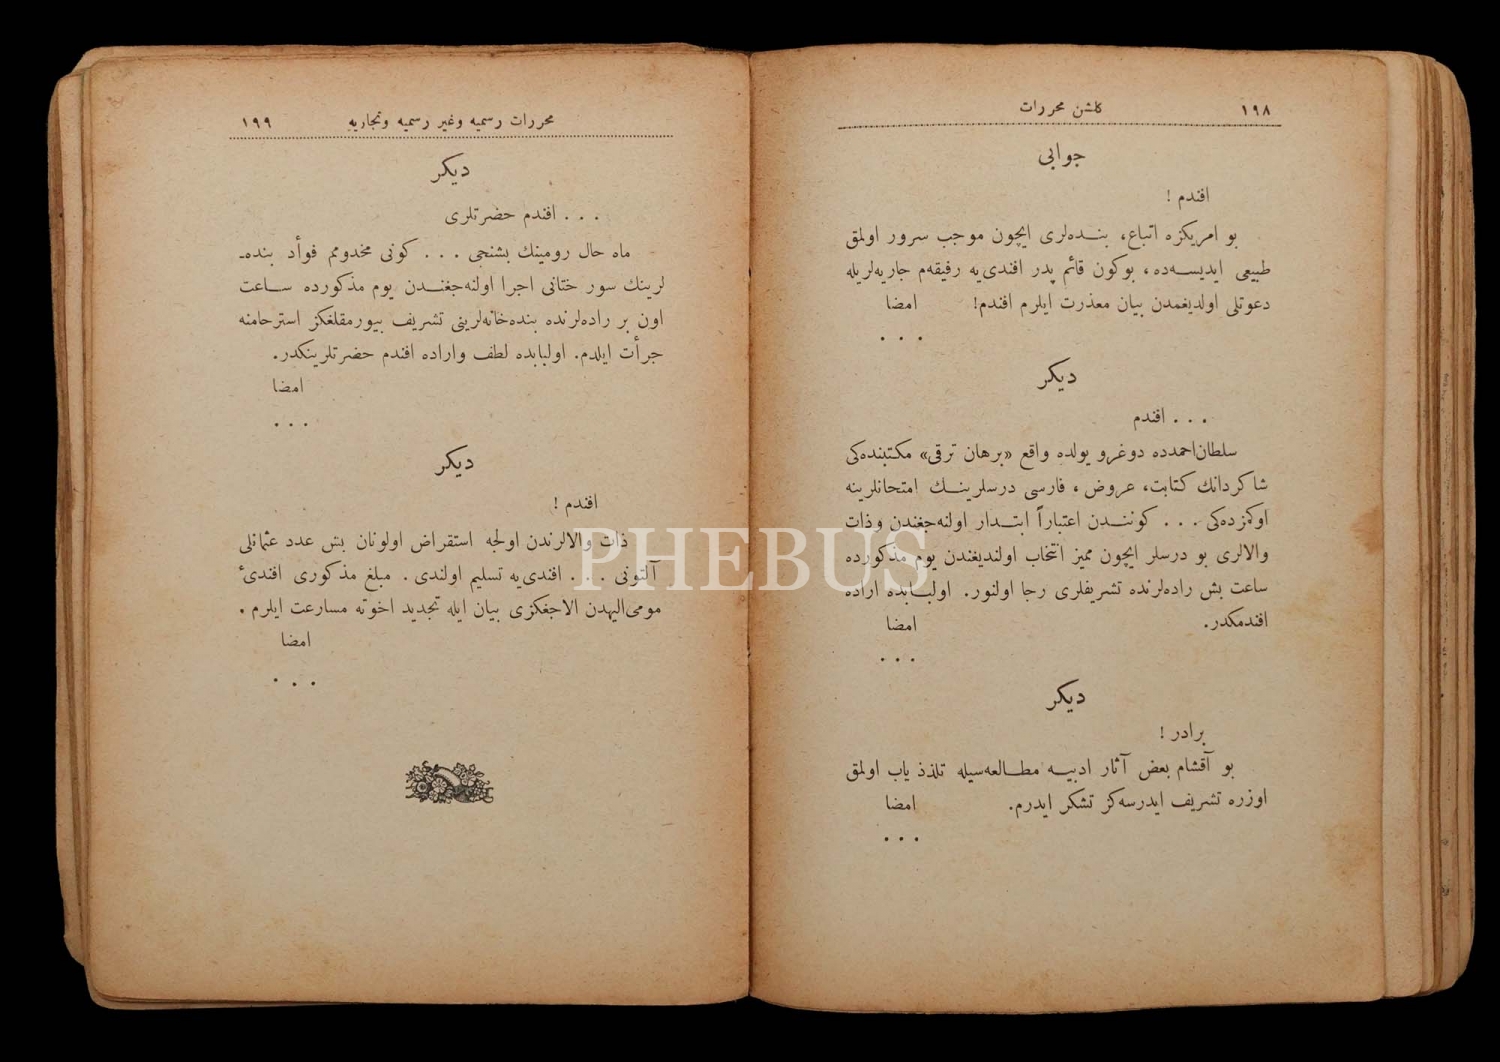 ١٩٨
كلشن محررات
جوابى
افندم !
بو امريكزه اتباع، بنده‌لرى ايچون موجب سرور اولمق
طبيعى ايديسه‌ده، بوكون قائم پدر افندى‌يه رفيقه‌م جاريه‌لريله
دعوتلى اولديغمدن بيان معذرت ايلرم افندم!
امضا
. . .
ديكر
. . . افندم
سلطان‌احمدده دوغرو يولده واقع «برهان ترقى» مكتبنده‌كى
شاكردانك كتابت، عروض ، فارسى درسلرينك امتحانلرينه
اوكمزده‌كى . . . كونندن اعتباراً ابتدار اولنه‌جغندن وذات
والالرى بو درسلر ايچون مميز انتخاب اولنديغندن يوم مذكورده
ساعت بش راده‌لرنده تشريفلرى رجا اولنور. اولبابده اراده
افندمكدر.
امضا
. . .
ديكر
برادر !
بو آقشام بعض آثار ادبيه مطالعه‌سيله تلذذ ياب اولمق
اوزره تشريف ايدرسه‌كز تشكر ايدرم.
امضا
. . .
محررات رسميه وغير رسميه وتجاريه
١٩٩
ديكر
. . . افندم حضرتلرى
ماه حال رومينك بشنجى . . . كونى مخدومم فوأد بنده‌ـ
لرينك سور ختانى اجرا اولنه‌جغندن يوم مذكورده ساعت
اون بر راده‌لرنده بنده‌خانه‌لرينى تشريف بيورمقلغكز استرحامنه
جرأت ايلدم. اولبابده لطف واراده افندم حضرتلرينكدر.
امضا
. . .
ديكر
افندم !
ذات والالرندن اولجه استقراض اولونان بش عدد عثمانلى
آلتونى . . . افندى‌يه تسليم اولندى . مبلغ مذكورى افندئ
مومى‌اليهدن الاجغكزى بيان ايله تجديد اخوته مسارعت ايلرم .
امضا
. . .
PHEBUS